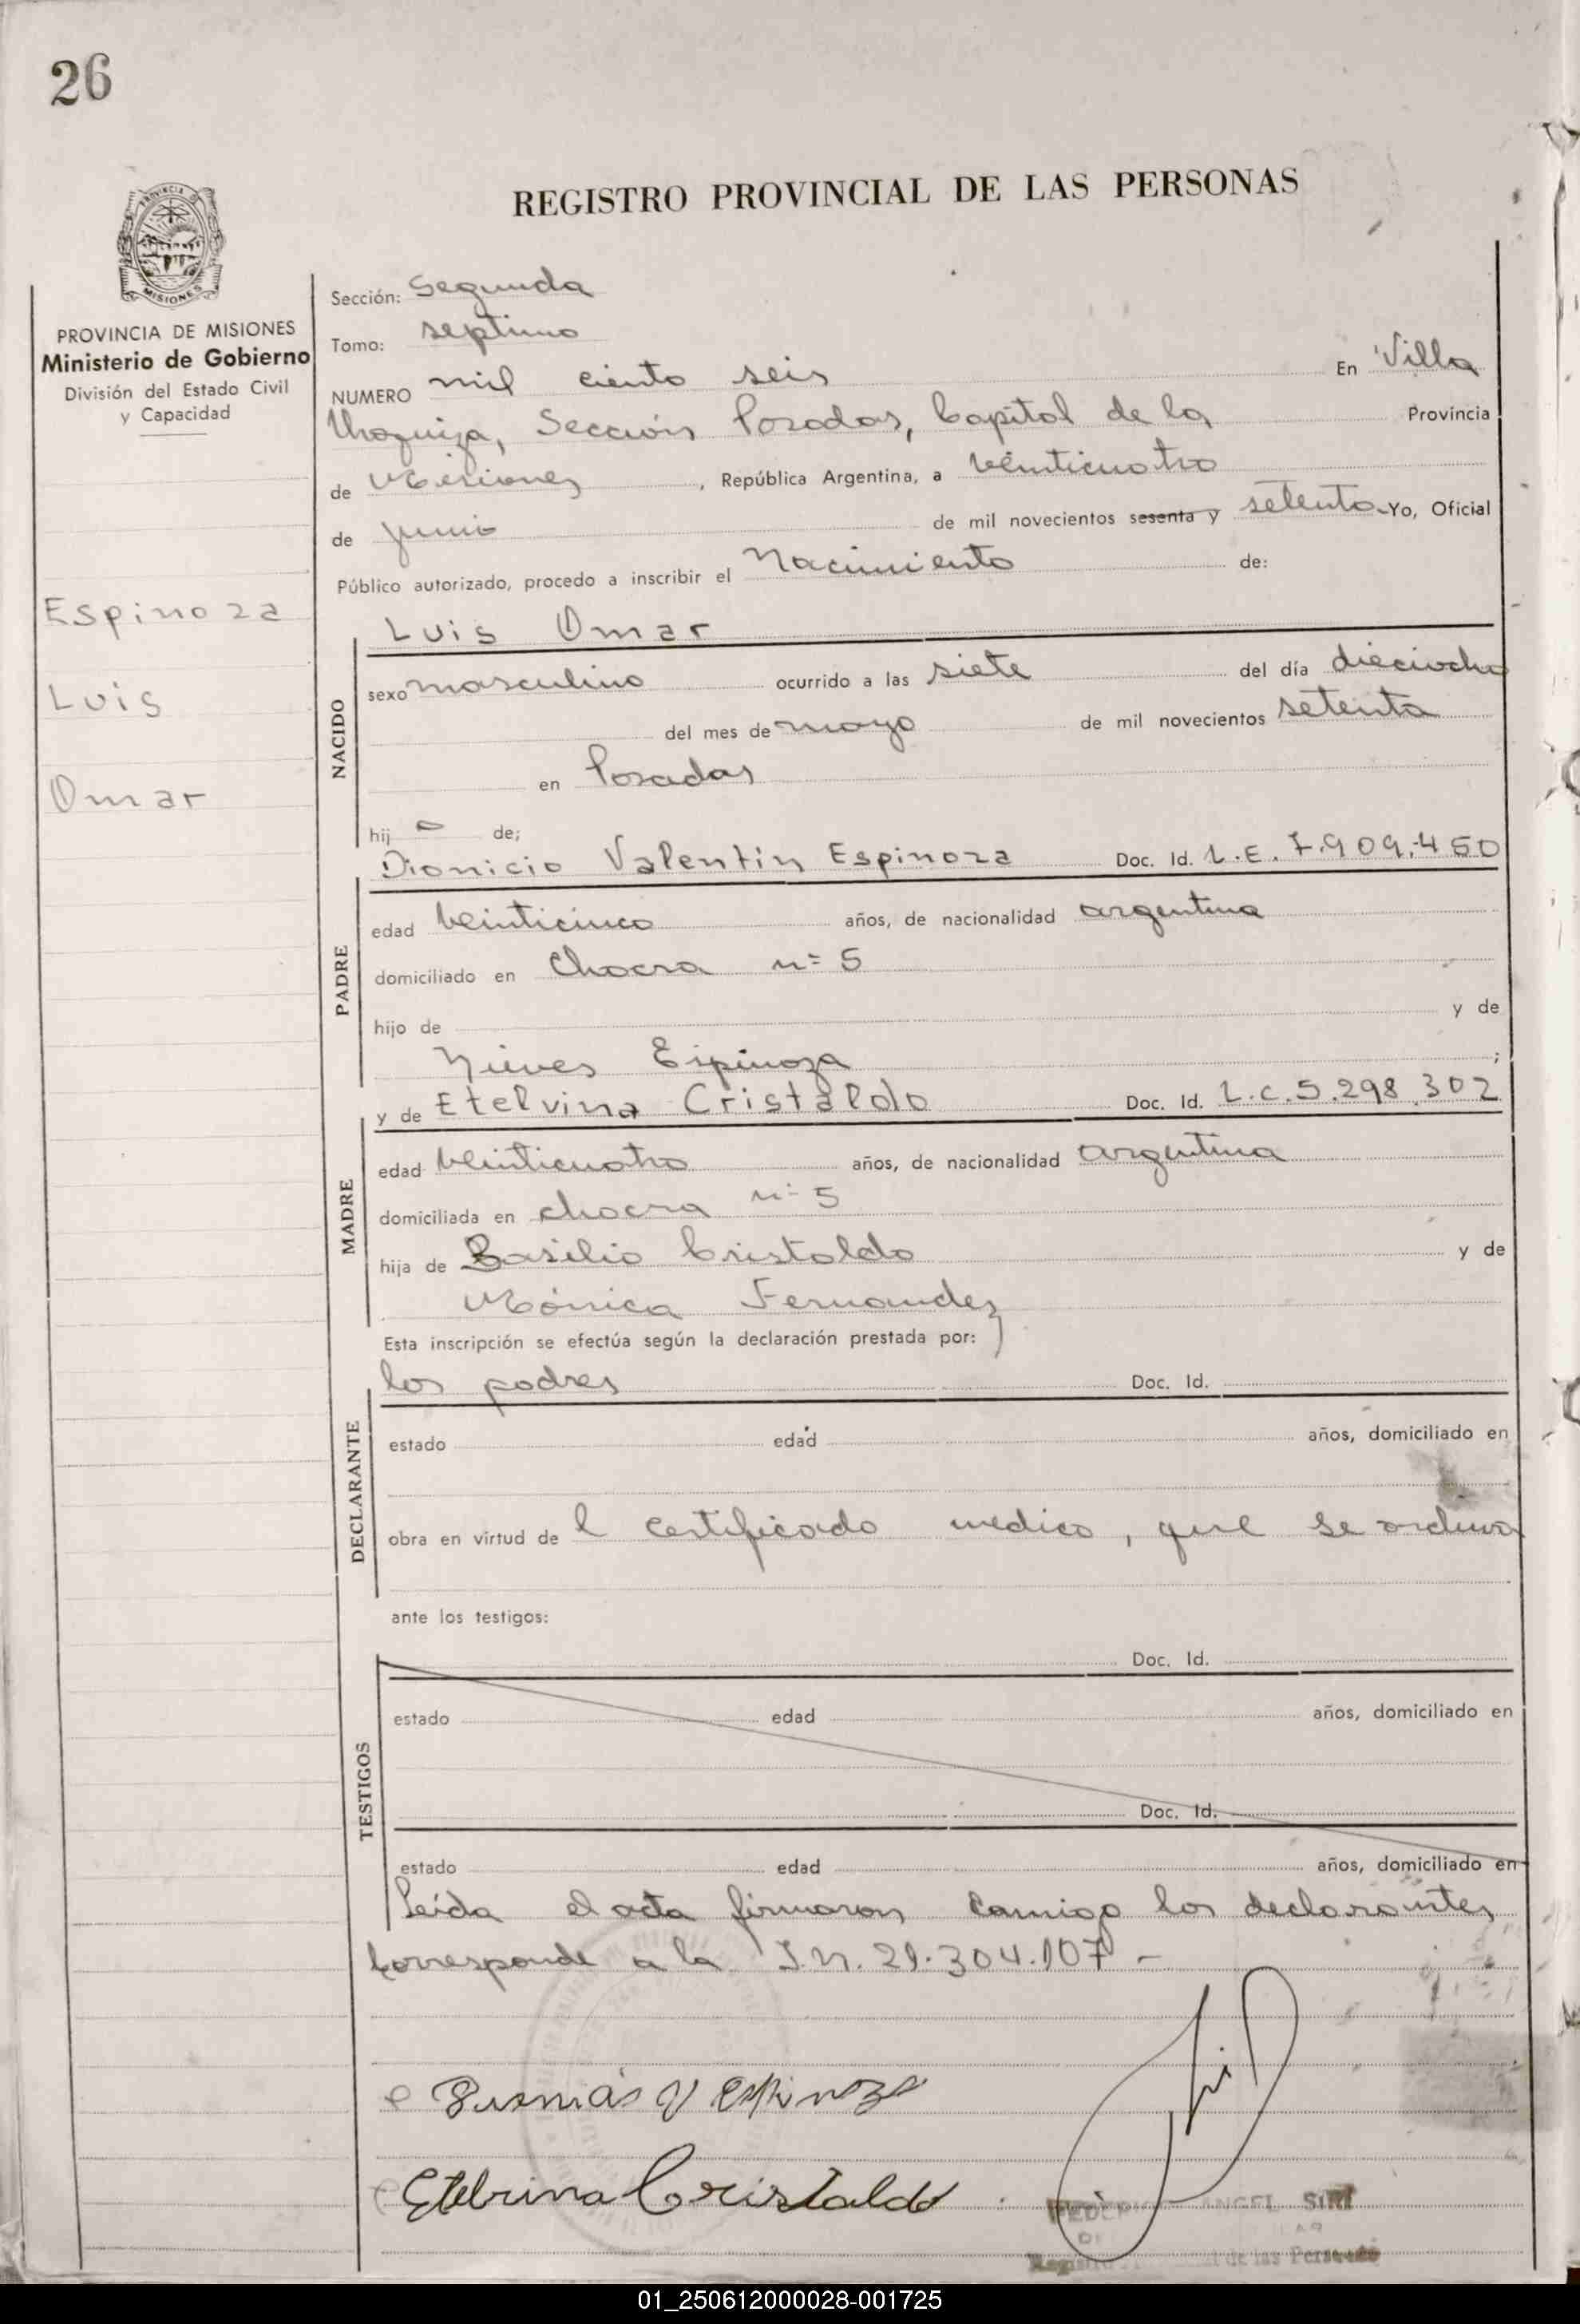 26
REGISTRO PROVINCIAL DE LAS PERSONAS
PROVINCIA DE MISIONES
Ministerio de Gobierno
División del Estado Civil
y Capacidad
Espinoza
Luis
Omar
Sección: Segunda
Tomo: septimo
NUMERO mil ciento seis En Villa
Urquiza, Sección Posadas, Capital de la Provincia
de Misiones, República Argentina, a veinticuatro
de junio de mil novecientos sesenta y setenta Yo, Oficial
Público autorizado, procedo a inscribir el Nacimiento de:
Luis Omar
NACIDO
sexo masculino ocurrido a las siete del día dieciocho
del mes de mayo de mil novecientos setenta
en Posadas
hij o de;
Dionicio Valentín Espinoza Doc. Id. L.E. 7.909.450
PADRE
edad veinticinco años, de nacionalidad argentina
domiciliado en Chacra n= 5
hijo de y de
Nieves Espinoza ;
y de Etelvina Cristaldo Doc. Id. L.C. 5.298.302
MADRE
edad veinticuatro años, de nacionalidad argentina
domiciliada en chacra n= 5
hija de Basilio Cristaldo y de
Mónica Fernandez
Esta inscripción se efectúa según la declaración prestada por:
los padres Doc. Id.
DECLARANTE
estado edad años, domiciliado en
obra en virtud de l certificado medico, que se archiva
ante los testigos:
Doc. Id.
TESTIGOS
estado edad años, domiciliado en
Doc. Id.
estado edad años, domiciliado en
Leída el acta firmaron conmigo los declarantes
Corresponde a la I.N. 21.304.107 -
V Espinoza
Etelvina Cristaldo
ANGEL SIRI
de las Personas
01_250612000028-001725